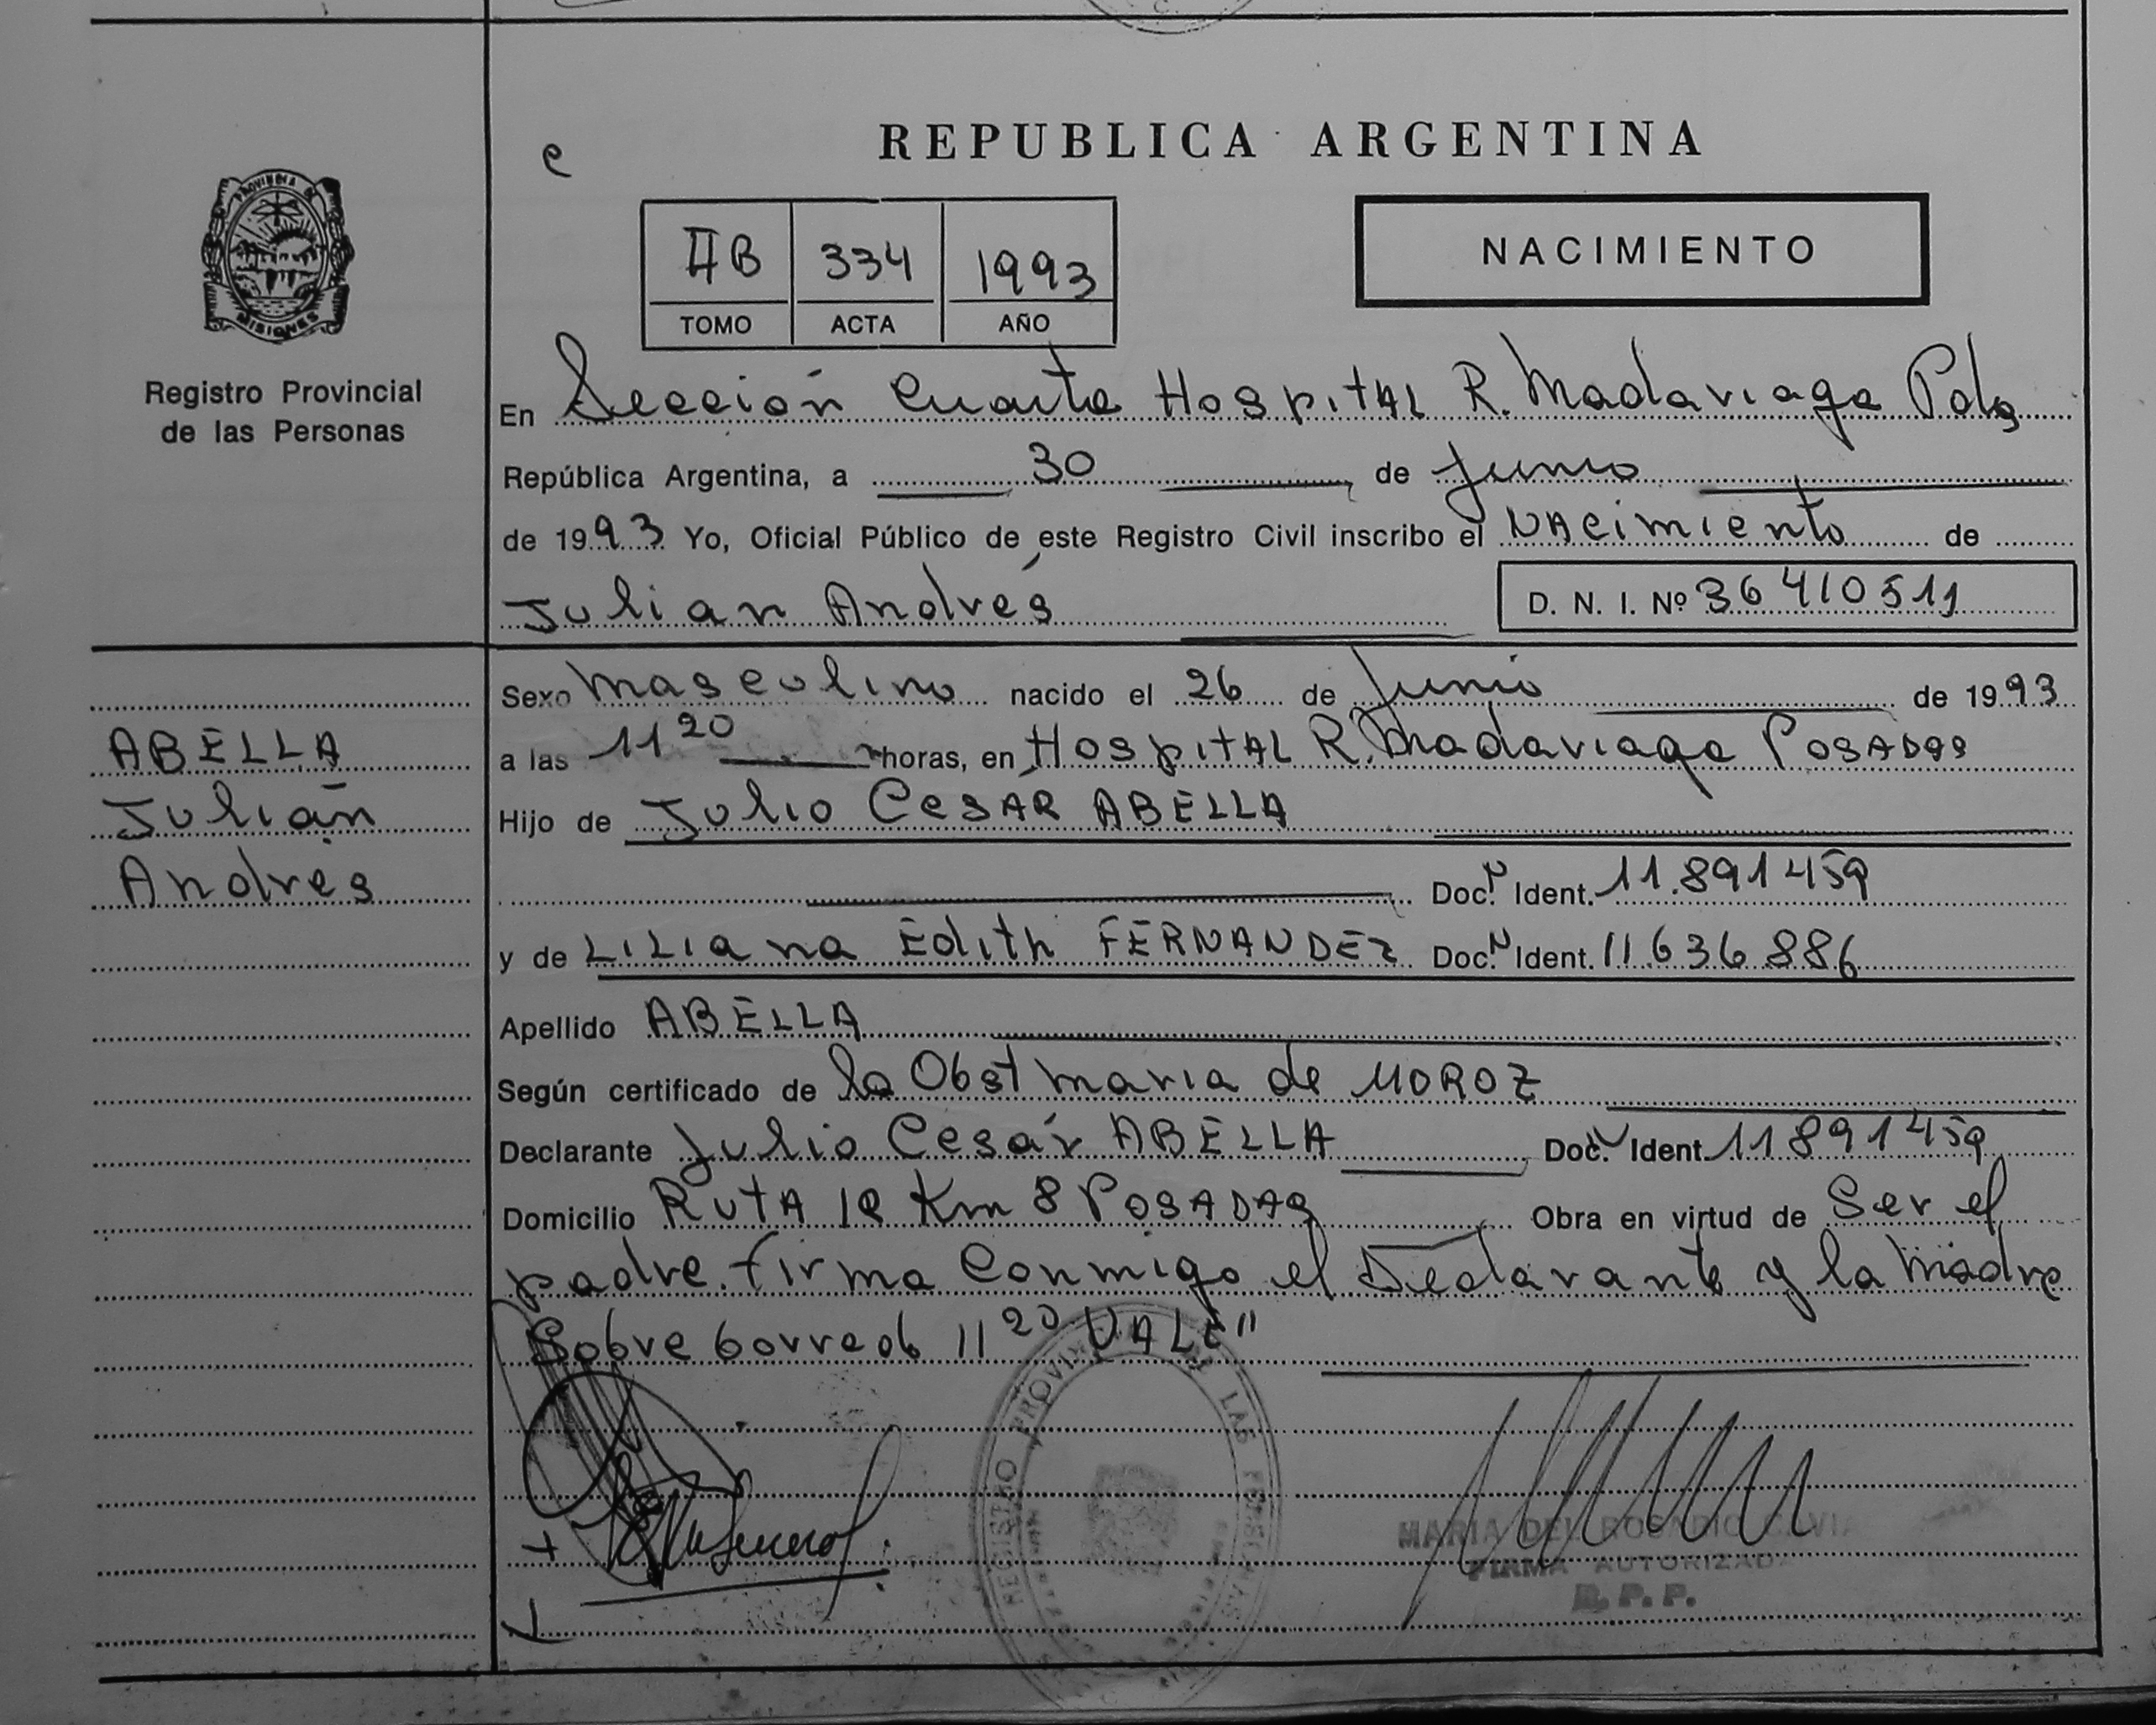 REPUBLICA ARGENTINA
PROVINCIA DE
MISIONES
Registro Provincial
de las Personas
e
IIB 334 1993
TOMO ACTA AÑO
NACIMIENTO
En Sección Cuarta Hospital R. Madariaga Pdas
República Argentina, a 30 de Junio
de 1993 Yo, Oficial Público de este Registro Civil inscribo el NAcimiento de
Julian Andrés
D. N. I. Nº 36410511
ABELLA
Julián
Andrés
Sexo masculino nacido el 26 de Junio de 1993
a las 11 20 horas, en Hospital R. Madariaga Posadas
Hijo de Julio Cesar ABELLA
Doc. N Ident. 11.891459
y de Liliana Edith FERNANDEZ Doc. N Ident. 11636886
Apellido ABELLA
Según certificado de la Obst maria de MOROZ
Declarante Julio Cesár ABELLA Doc. N Ident. 11891459
Domicilio Ruta 12 Km 8 Posadas Obra en virtud de Ser el
padre. firma Conmigo el Declarante y la madre
Sobre borrado 11 20 VALE"
REGISTRO PROVINCIAL DE LAS PERSONAS
MARIA DEL ROSARIO
FIRMA AUTORIZADA
R. P. P.